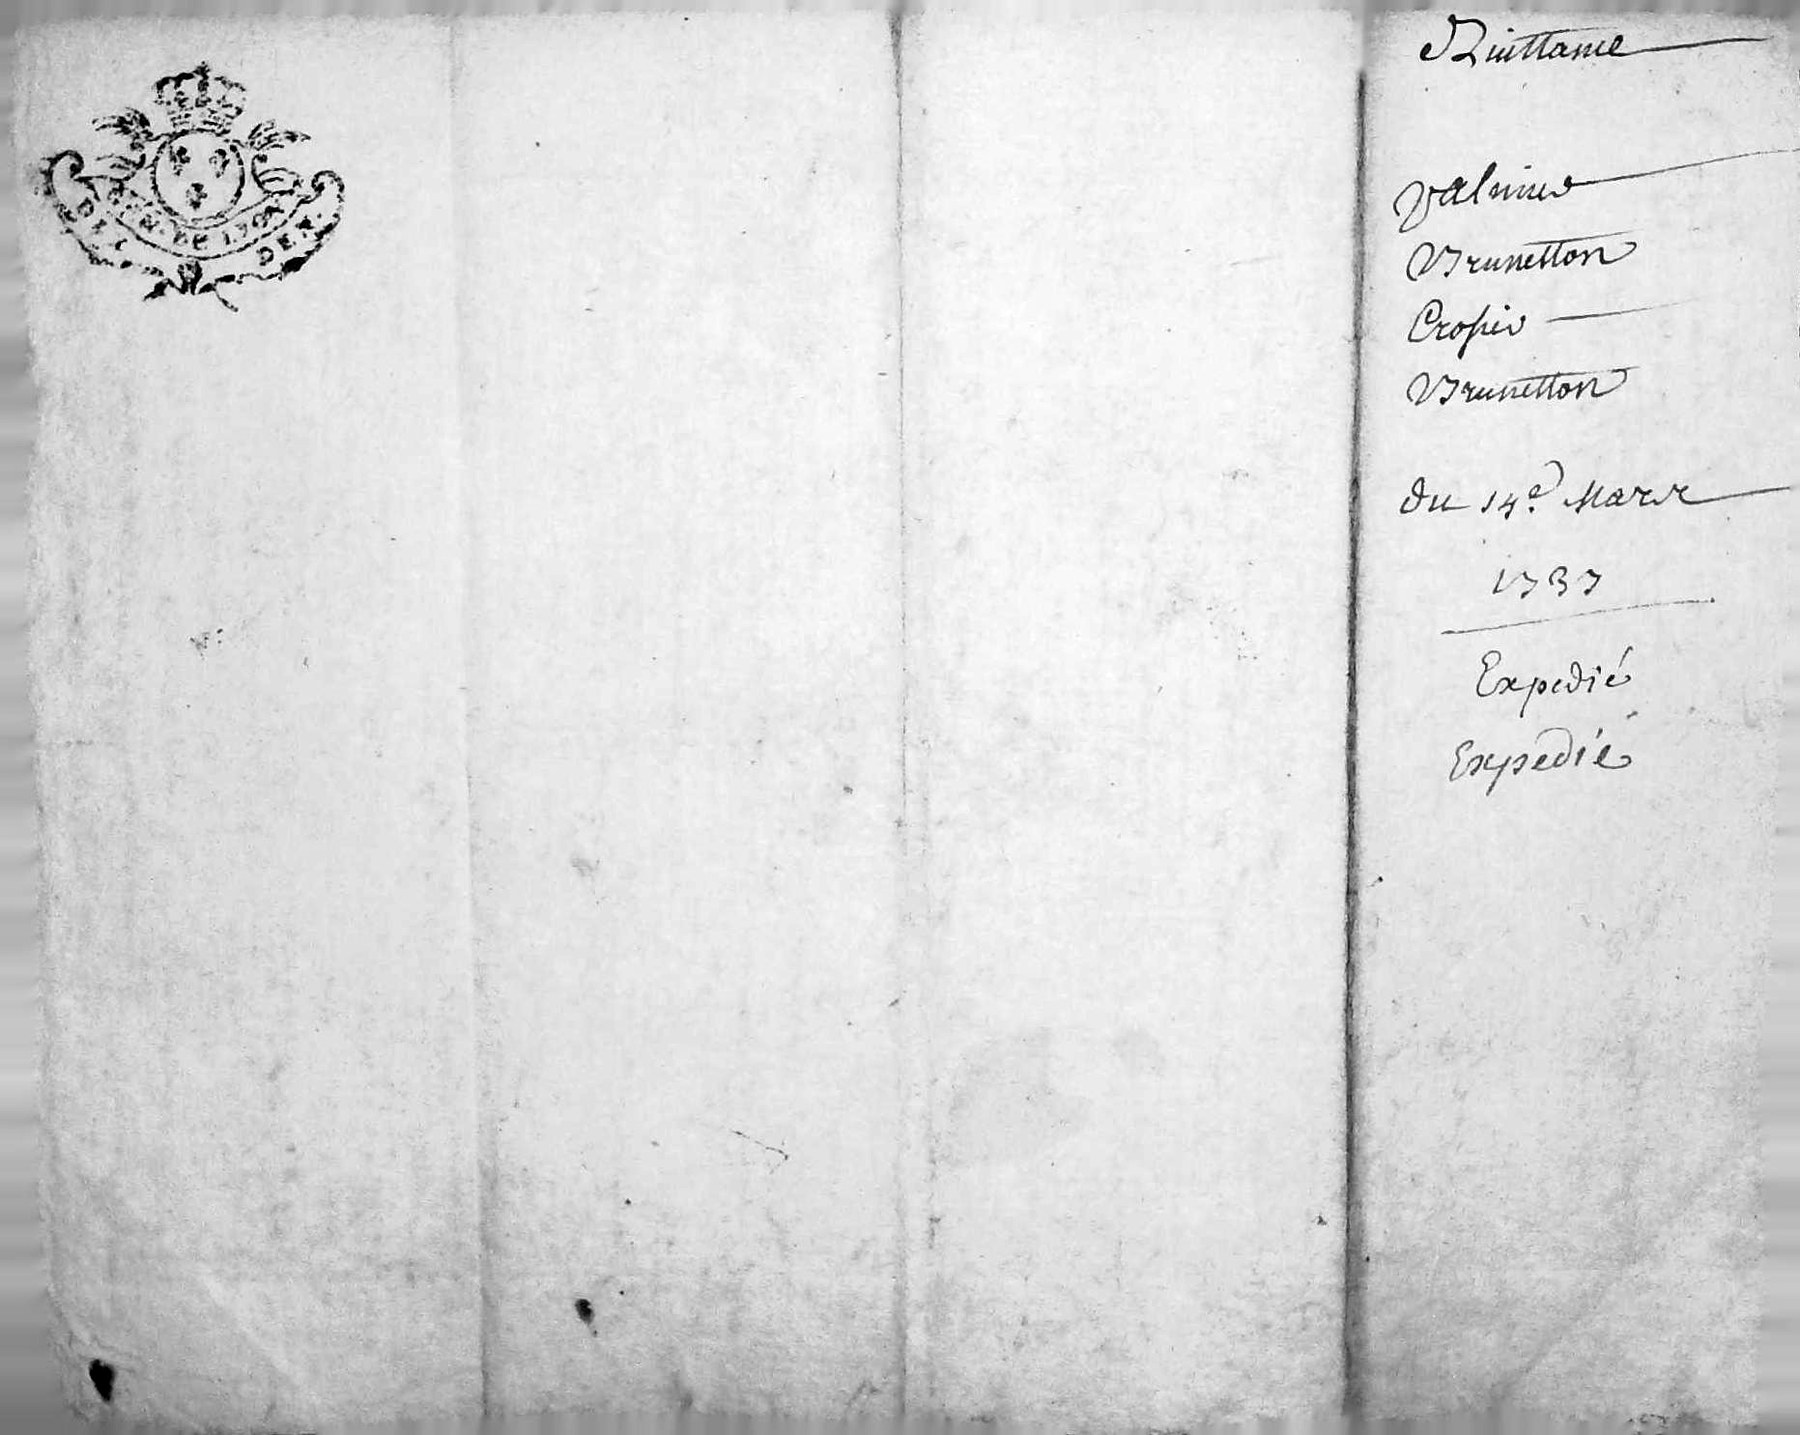 DEUX DEN.
GEN. DE
Quittance
Brunetton
Crosnier
Brunetton
du 14.e Mars
1737
Expedié
Expedié